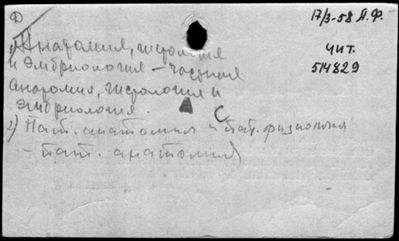 Ф
17/3-58 Л.Ф.
1) Анатомия, гистология
и эмбриология – частная
анатомия, гистология и
эмбриология.
чит.
514829
2) Пат. анатомия и пат. физиология
– пат. анатомия